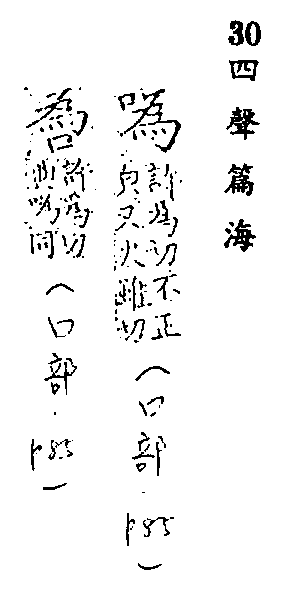 30 四聲篇海
噅 許為切不正
皃又火雖切（口部．p85）
許為切
與噅同（口部．p85）